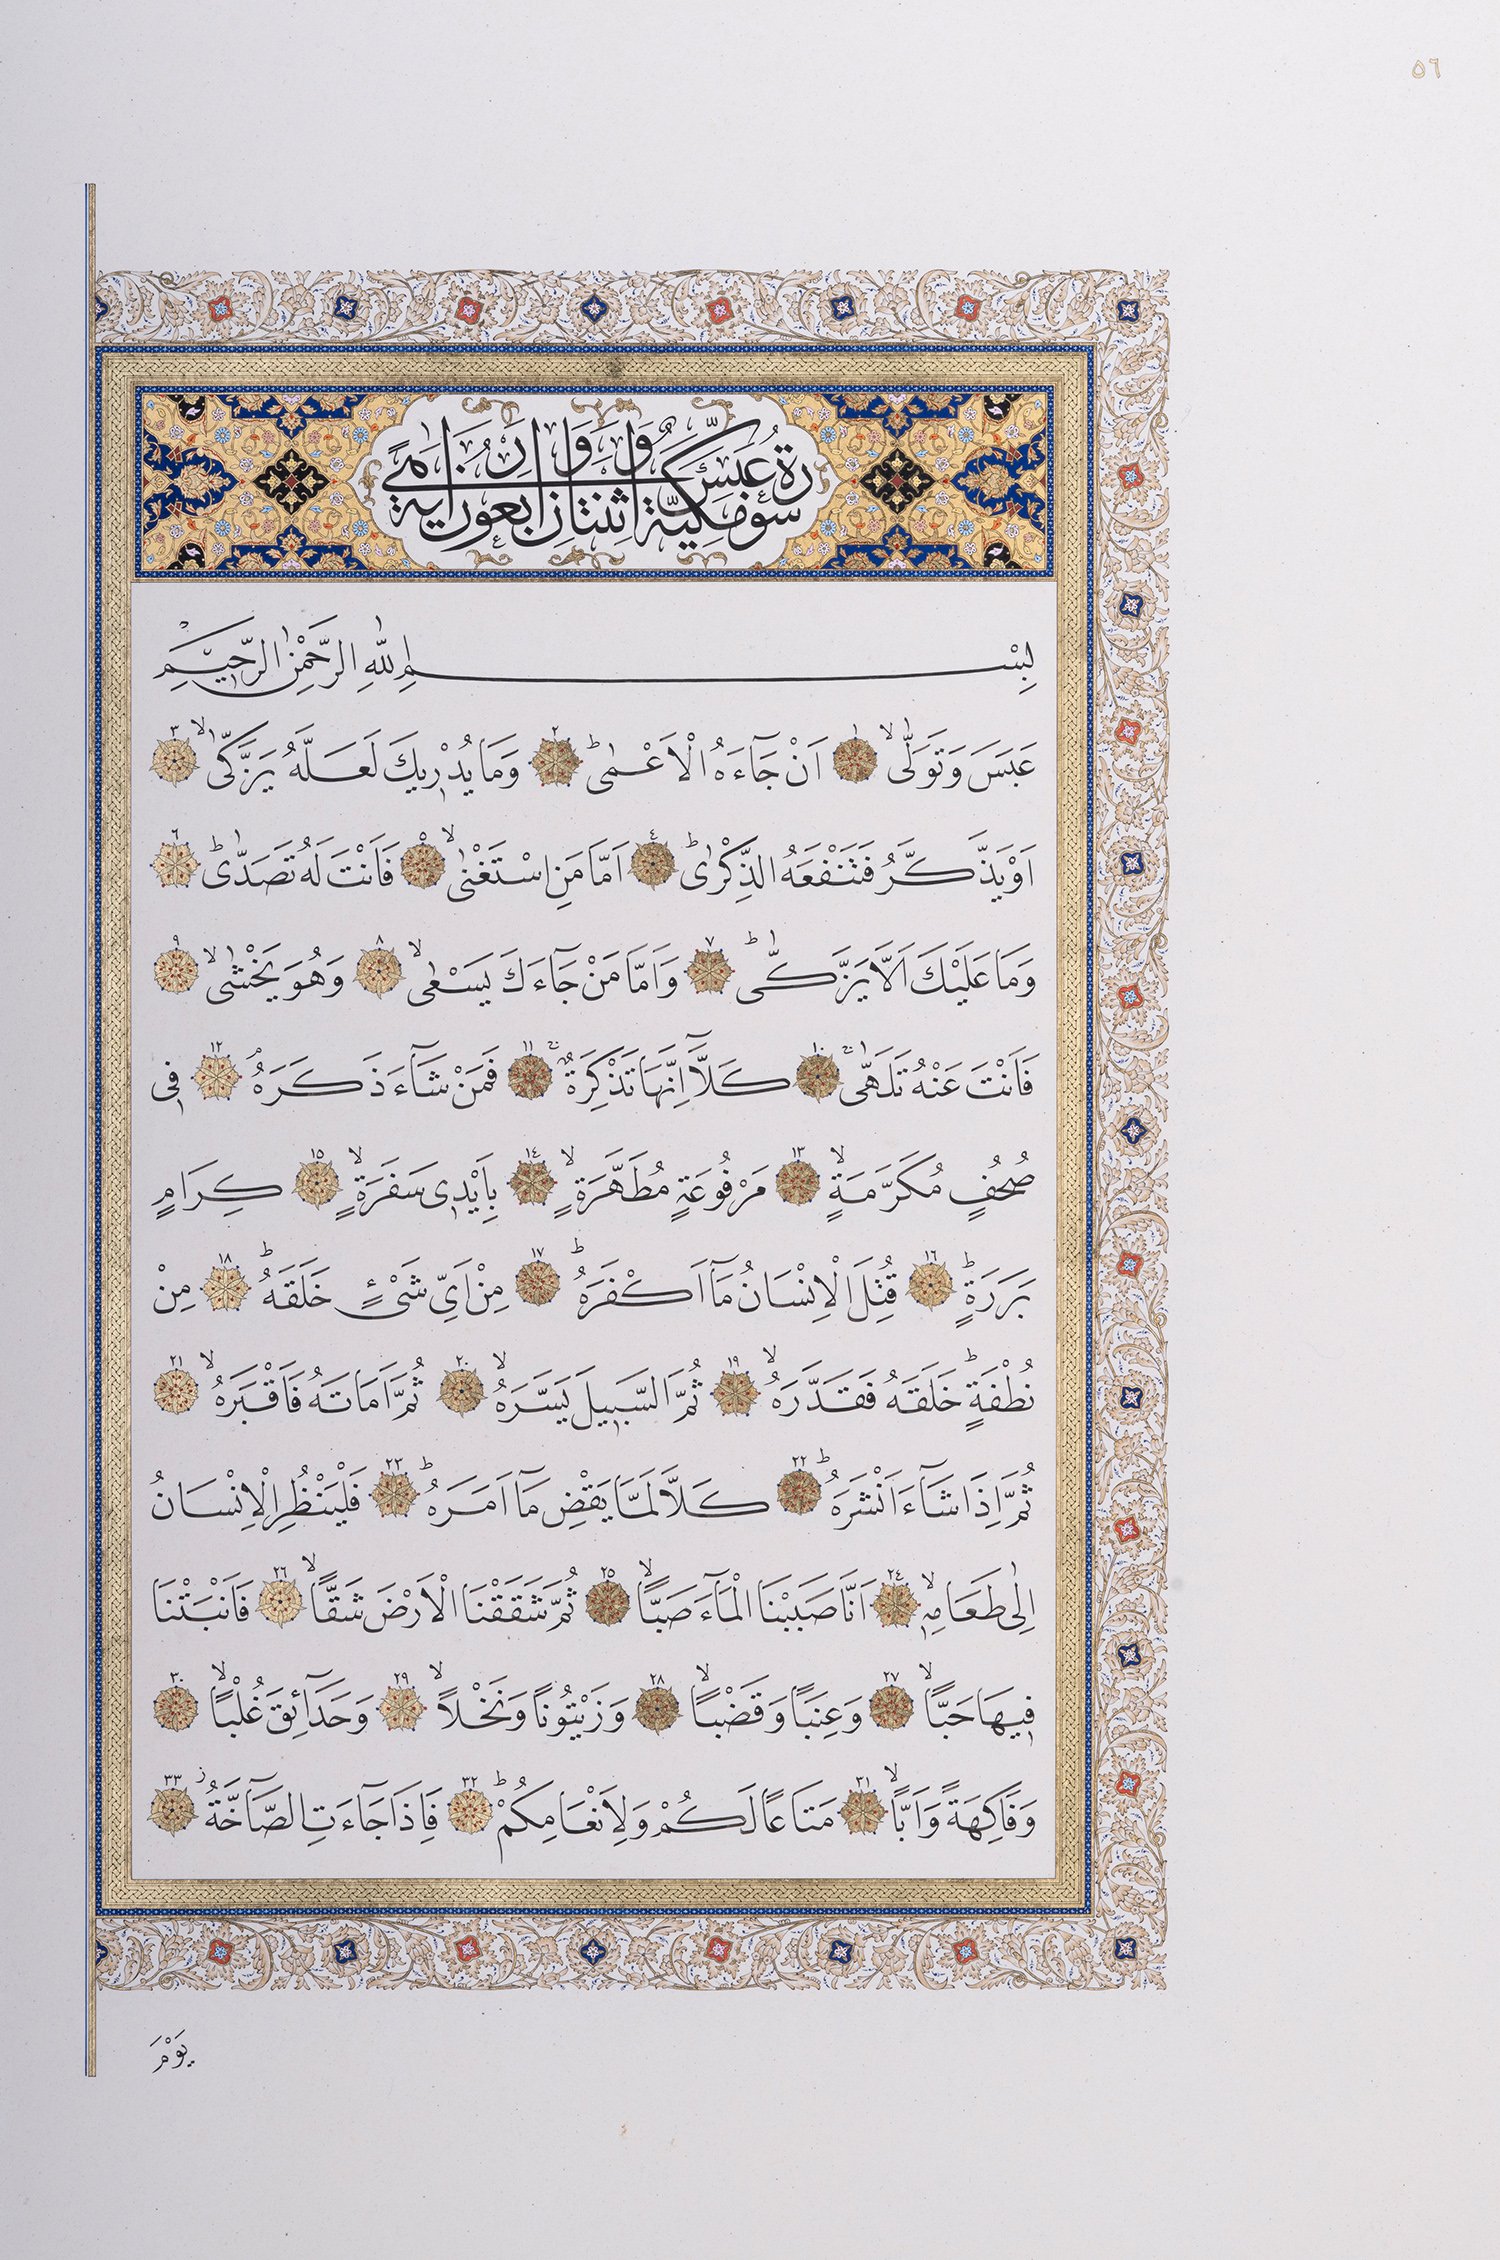 ٥٦
سورة عبس مكية وهى اثنتان واربعون اية
بِسْمِ اللّٰهِ الرَّحْمٰنِ الرَّحِيمِ
عَبَسَ وَتَوَلّٰىۙ ١ اَنْ جَآءَهُ الْاَعْمٰىؕ ٢ وَمَا يُدْرِيكَ لَعَلَّهُ يَزَّكّٰىۙ ٣
اَوْ يَذَّكَّرُ فَتَنْفَعَهُ الذِّكْرٰىؕ ٤ اَمَّا مَنِ اسْتَغْنٰىۙ ٥ فَاَنْتَ لَهُ تَصَدّٰىؕ ٦
وَمَا عَلَيْكَ اَلَّا يَزَّكّٰىؕ ٧ وَاَمَّا مَنْ جَآءَكَ يَسْعٰىۙ ٨ وَهُوَ يَخْشٰىۙ ٩
فَاَنْتَ عَنْهُ تَلَهّٰى ١٠ كَلَّآ اِنَّهَا تَذْكِرَةٌ ١١ فَمَنْ شَآءَ ذَكَرَهُ ١٢ فِى
صُحُفٍ مُكَرَّمَةٍۙ ١٣ مَرْفُوعَةٍ مُطَهَّرَةٍۙ ١٤ بِاَيْدِى سَفَرَةٍۙ ١٥ كِرَامٍ
بَرَرَةٍؕ ١٦ قُتِلَ الْاِنْسَانُ مَآ اَكْفَرَهُؕ ١٧ مِنْ اَىِّ شَىْءٍ خَلَقَهُؕ ١٨ مِنْ
نُطْفَةٍؕ خَلَقَهُ فَقَدَّرَهُۙ ١٩ ثُمَّ السَّبِيلَ يَسَّرَهُۙ ٢٠ ثُمَّ اَمَاتَهُ فَاَقْبَرَهُۙ ٢١
ثُمَّ اِذَا شَآءَ اَنْشَرَهُؕ ٢٢ كَلَّا لَمَّا يَقْضِ مَآ اَمَرَهُؕ ٢٣ فَلْيَنْظُرِ الْاِنْسَانُ
اِلٰى طَعَامِهِۙ ٢٤ اَنَّا صَبَبْنَا الْمَآءَ صَبًّاۙ ٢٥ ثُمَّ شَقَقْنَا الْاَرْضَ شَقًّاۙ ٢٦ فَاَنْبَتْنَا
فِيهَا حَبًّاۙ ٢٧ وَعِنَبًا وَقَضْبًاۙ ٢٨ وَزَيْتُونًا وَنَخْلًاۙ ٢٩ وَحَدَآئِقَ غُلْبًاۙ ٣٠
وَفَاكِهَةً وَاَبًّاۙ ٣١ مَتَاعًا لَكُمْ وَلِاَنْعَامِكُمْؕ ٣٢ فَاِذَا جَآءَتِ الصَّآخَّةُ ٣٣
يَوْمَ